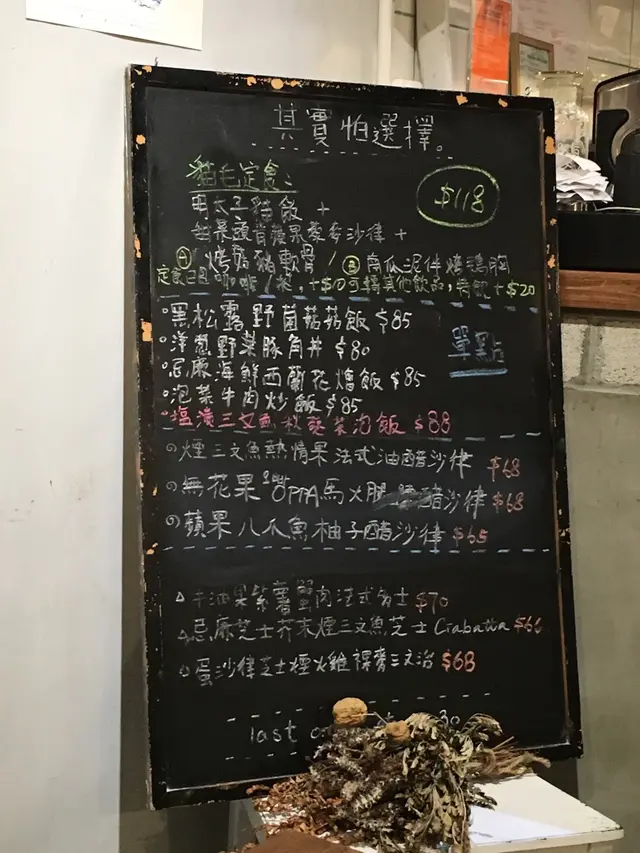 其實怕選擇。
貓毛定食：
$118
明太子貓飯 +
沙律 +
Ⓐ 烤豬軟骨 / Ⓑ 南瓜泥伴烤鴨胸
定食已包咖啡/茶，+$10可轉其他飲品，+$20
單點
黑松露野菌菇菇飯 $85
洋蔥野菜豚角丼 $80
忌廉海鮮西蘭花燴飯 $85
泡菜牛肉炒飯 $85
塩漬三文魚 茶泡飯 $88
煙三文魚熱情果法式油醋沙律 $68
無花果 OPPA馬火腿 醋沙律 $68
蘋果八爪魚柚子醋沙律 $65
牛油果紫薯蟹肉法式多士 $70
忌廉芝士芥末煙三文魚芝士 Ciabatta
蛋沙律芝士煙火雞裸麥三文治 $68
last